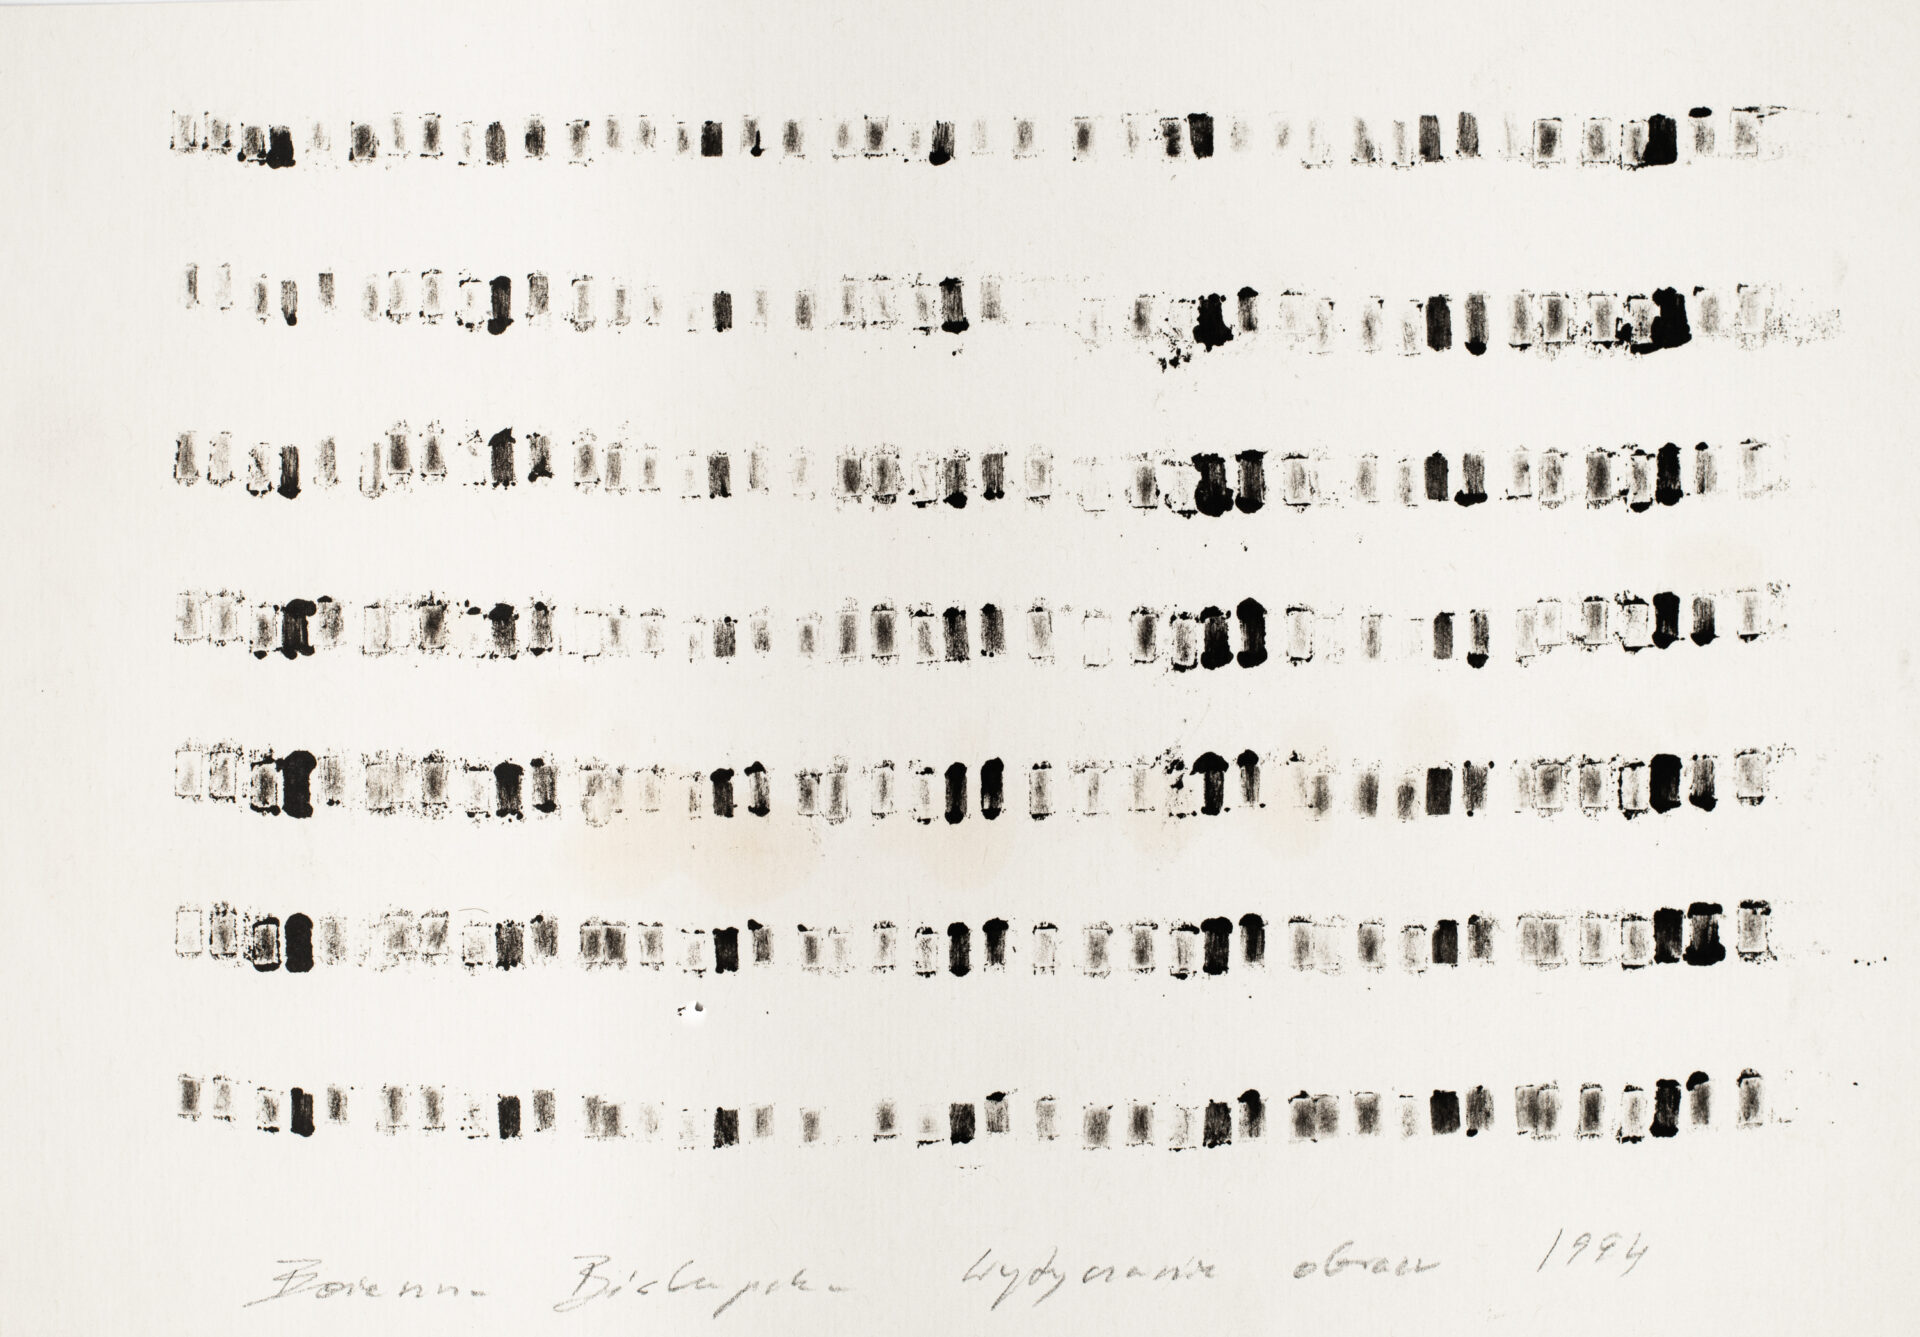 Bożenna Biskupska Wytyczanie obrazu 1994